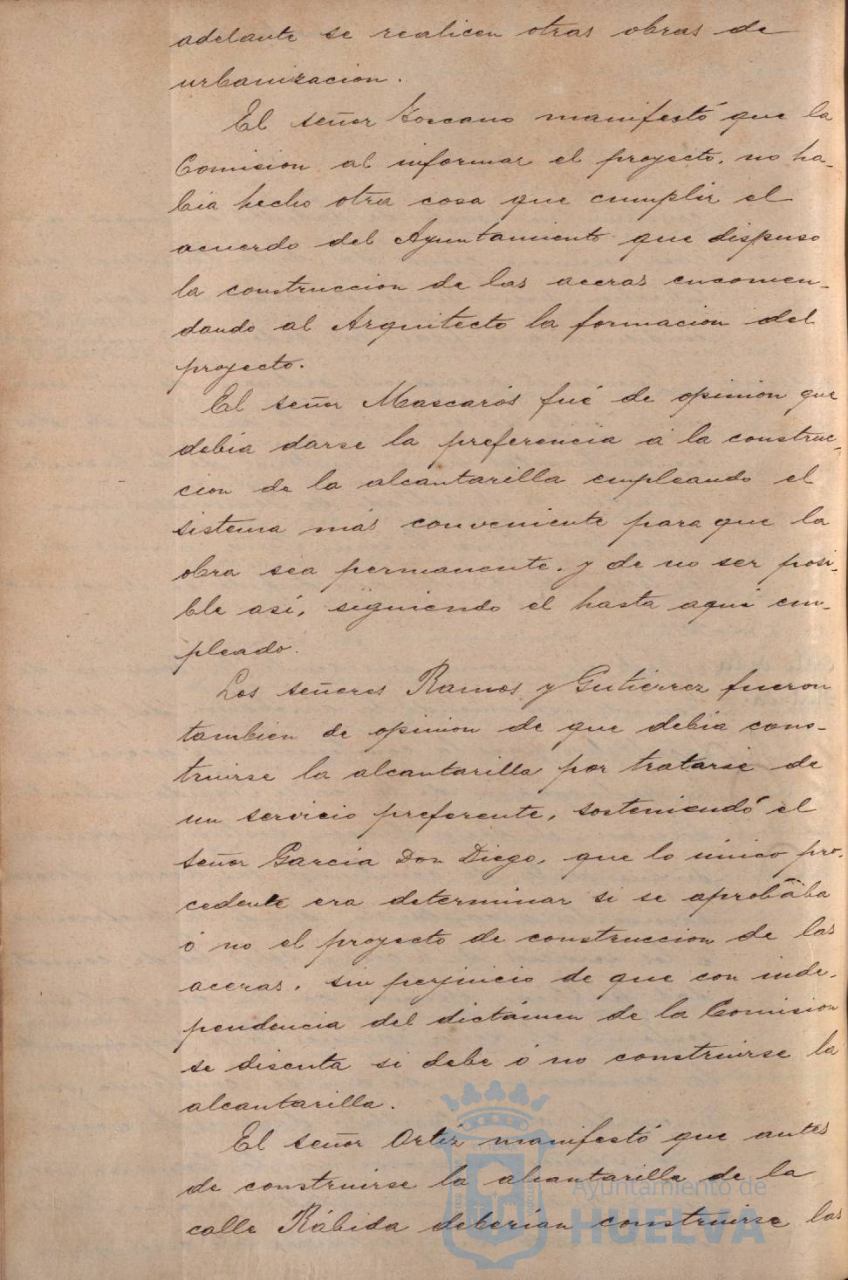 adelante se realicen otras obras de
urbanizacion.
El señor Toscano manifestó que la
Comision al informar el proyecto, no ha-
bia hecho otra cosa que cumplir el
acuerdo del Ayuntamiento que dispuso
la construccion de las aceras encomen-
dando al Arquitecto la formacion del
proyecto.
El señor Mascarós fué de opinion que
debia darse la preferencia á la construc-
cion de la alcantarilla empleando el
sistema más conveniente para que la
obra sea permanente, y de no ser posi-
ble así, siguiendo el hasta aquí em-
pleado.
Los señores Ramos y Gutierrez fueron
tambien de opinion de que debia cons-
truirse la alcantarilla por tratarse de
un servicio preferente, sosteniendó el
señor García Don Diego, que lo único pro-
cedente era determinar si se aprobába
ó no el proyecto de construccion de las
aceras, sin perjuicio de que con inde-
pendencia del dictámen de la Comision
se discuta si debe ó no construirse la
alcantarilla.
El señor Ortíz manifestó que antes
de construirse la alcantarilla de la
calle Rábida deberían construirse las
Ayuntamiento de
HUELVA